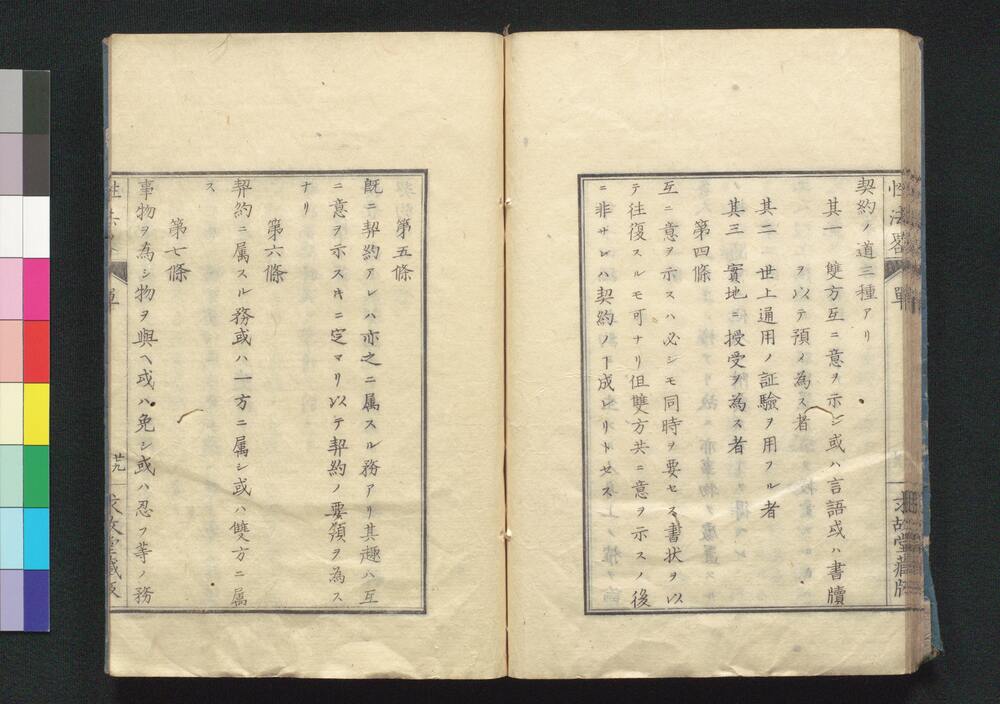 性法畧
單
求故堂藏版
契約ノ道三種アリ
其一 雙方互ニ意ヲ示シ或ハ言語或ハ書牘
ヲ以テ預メ為ス者
其二 世上通用ノ証驗ヲ用フル者
其三 實地ニ授受ヲ為ス者
第四條
互ニ意ヲ示スハ必シモ同時ヲ要セス書状ヲ以
テ往復スルモ可ナリ但雙方共ニ意ヲ示スノ後
ニ非サレハ契約ノヿ成レリトセス
第五條
既ニ契約アレハ亦之ニ属スル務アリ其趣ハ互
ニ意ヲ示スキニ定マリ以テ契約ノ要領ヲ為ス
ナリ
第六條
契約ニ属スル務或ハ一方ニ属シ或ハ雙方ニ属
ス
第七條
事物ヲ為シ物ヲ與ヘ或ハ免シ或ハ忍フ等ノ務
性法畧
單
廿九
求故堂藏版